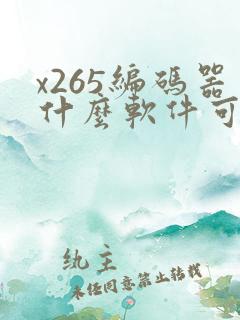 x265編碼器
什麼軟件可
紈主
未經同意禁止轉載